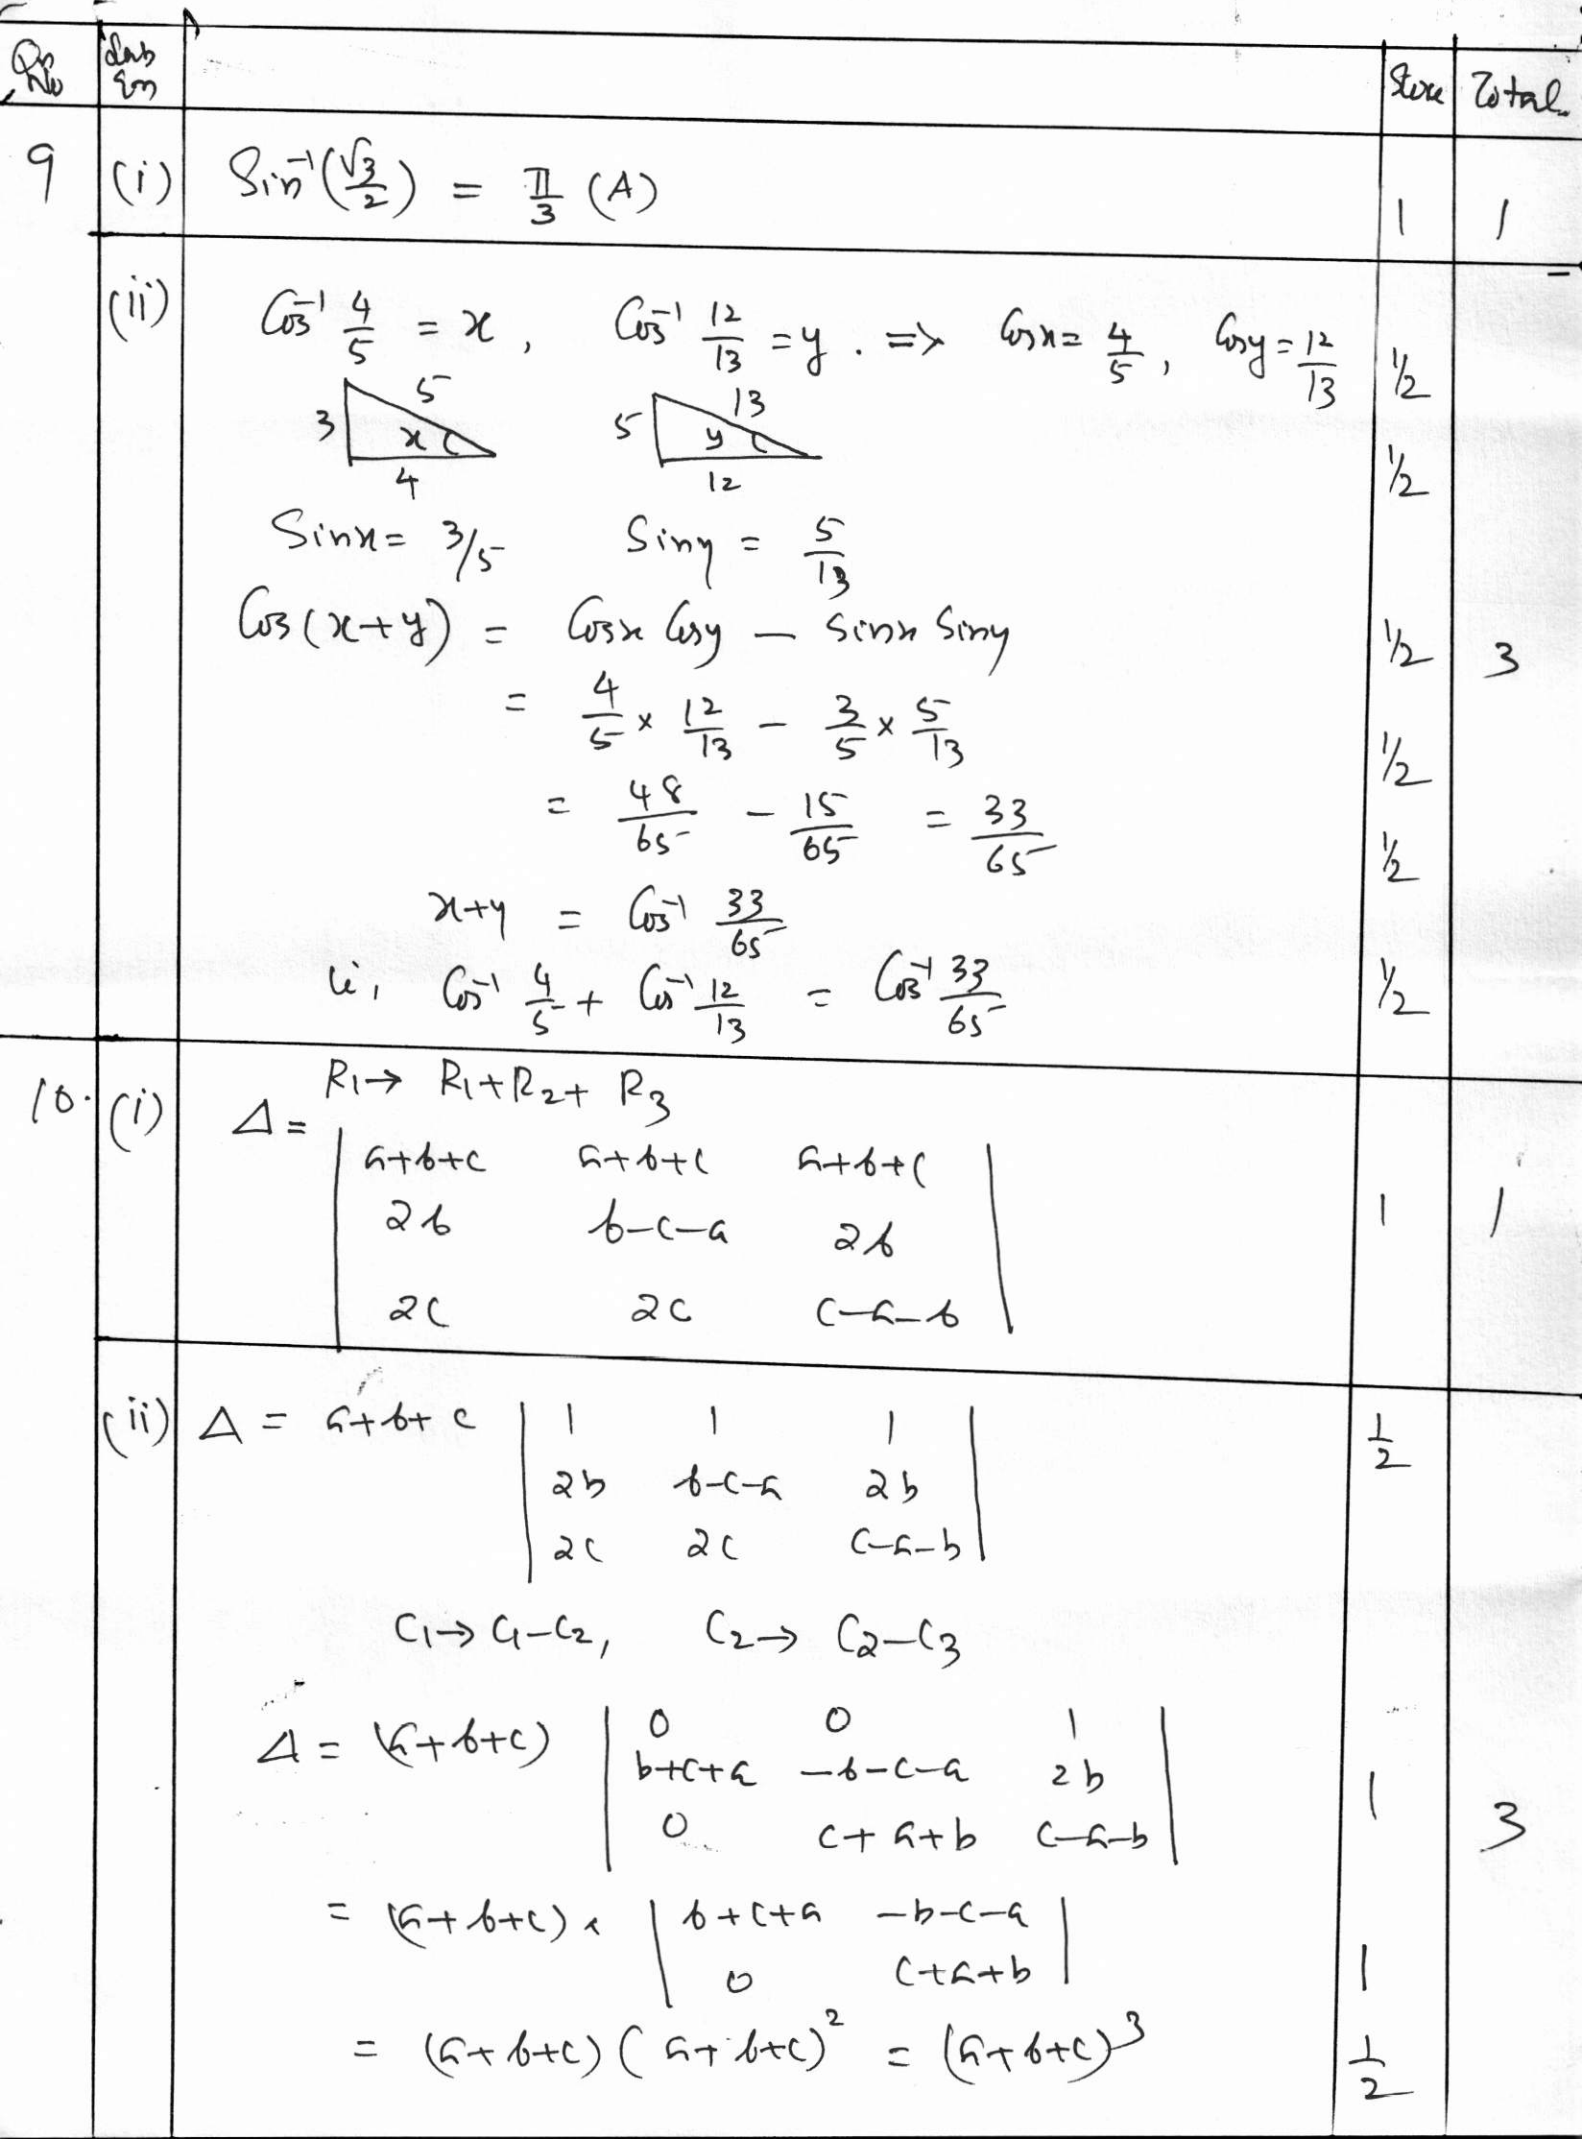 Qn No Sub Qn Score Total
9 (i) Sin⁻¹(√3/2) = π/3 (A) 1 1
(ii) Cos⁻¹ 4/5 = x, Cos⁻¹ 12/13 = y. => Cosx = 4/5, Cosy = 12/13 1/2
3 5 x 4 5 13 y 12 1/2
Sinx = 3/5 Siny = 5/13
Cos(x+y) = Cosx Cosy – Sinx Siny 1/2 3
= 4/5 × 12/13 – 3/5 × 5/13 1/2
= 48/65 – 15/65 = 33/65 1/2
x+y = Cos⁻¹ 33/65
ie, Cos⁻¹ 4/5 + Cos⁻¹ 12/13 = Cos⁻¹ 33/65 1/2
10. (i) R1→ R1+R2+ R3
Δ =
| a+b+c a+b+c a+b+c |
| 2b b-c-a 2b | 1 1
| 2c 2c c-a-b |
(ii) Δ = a+b+c | 1 1 1 | 1/2
| 2b b-c-a 2b |
| 2c 2c c-a-b |
C1→ C1-C2, C2→ C2-C3
Δ = (a+b+c) | 0 0 1 |
| b+c+a -b-c-a 2b | 1
| 0 c+a+b c-a-b | 3
= (a+b+c) × | b+c+a -b-c-a |
| 0 c+a+b | 1
= (a+b+c) (a+b+c)² = (a+b+c)³ 1/2